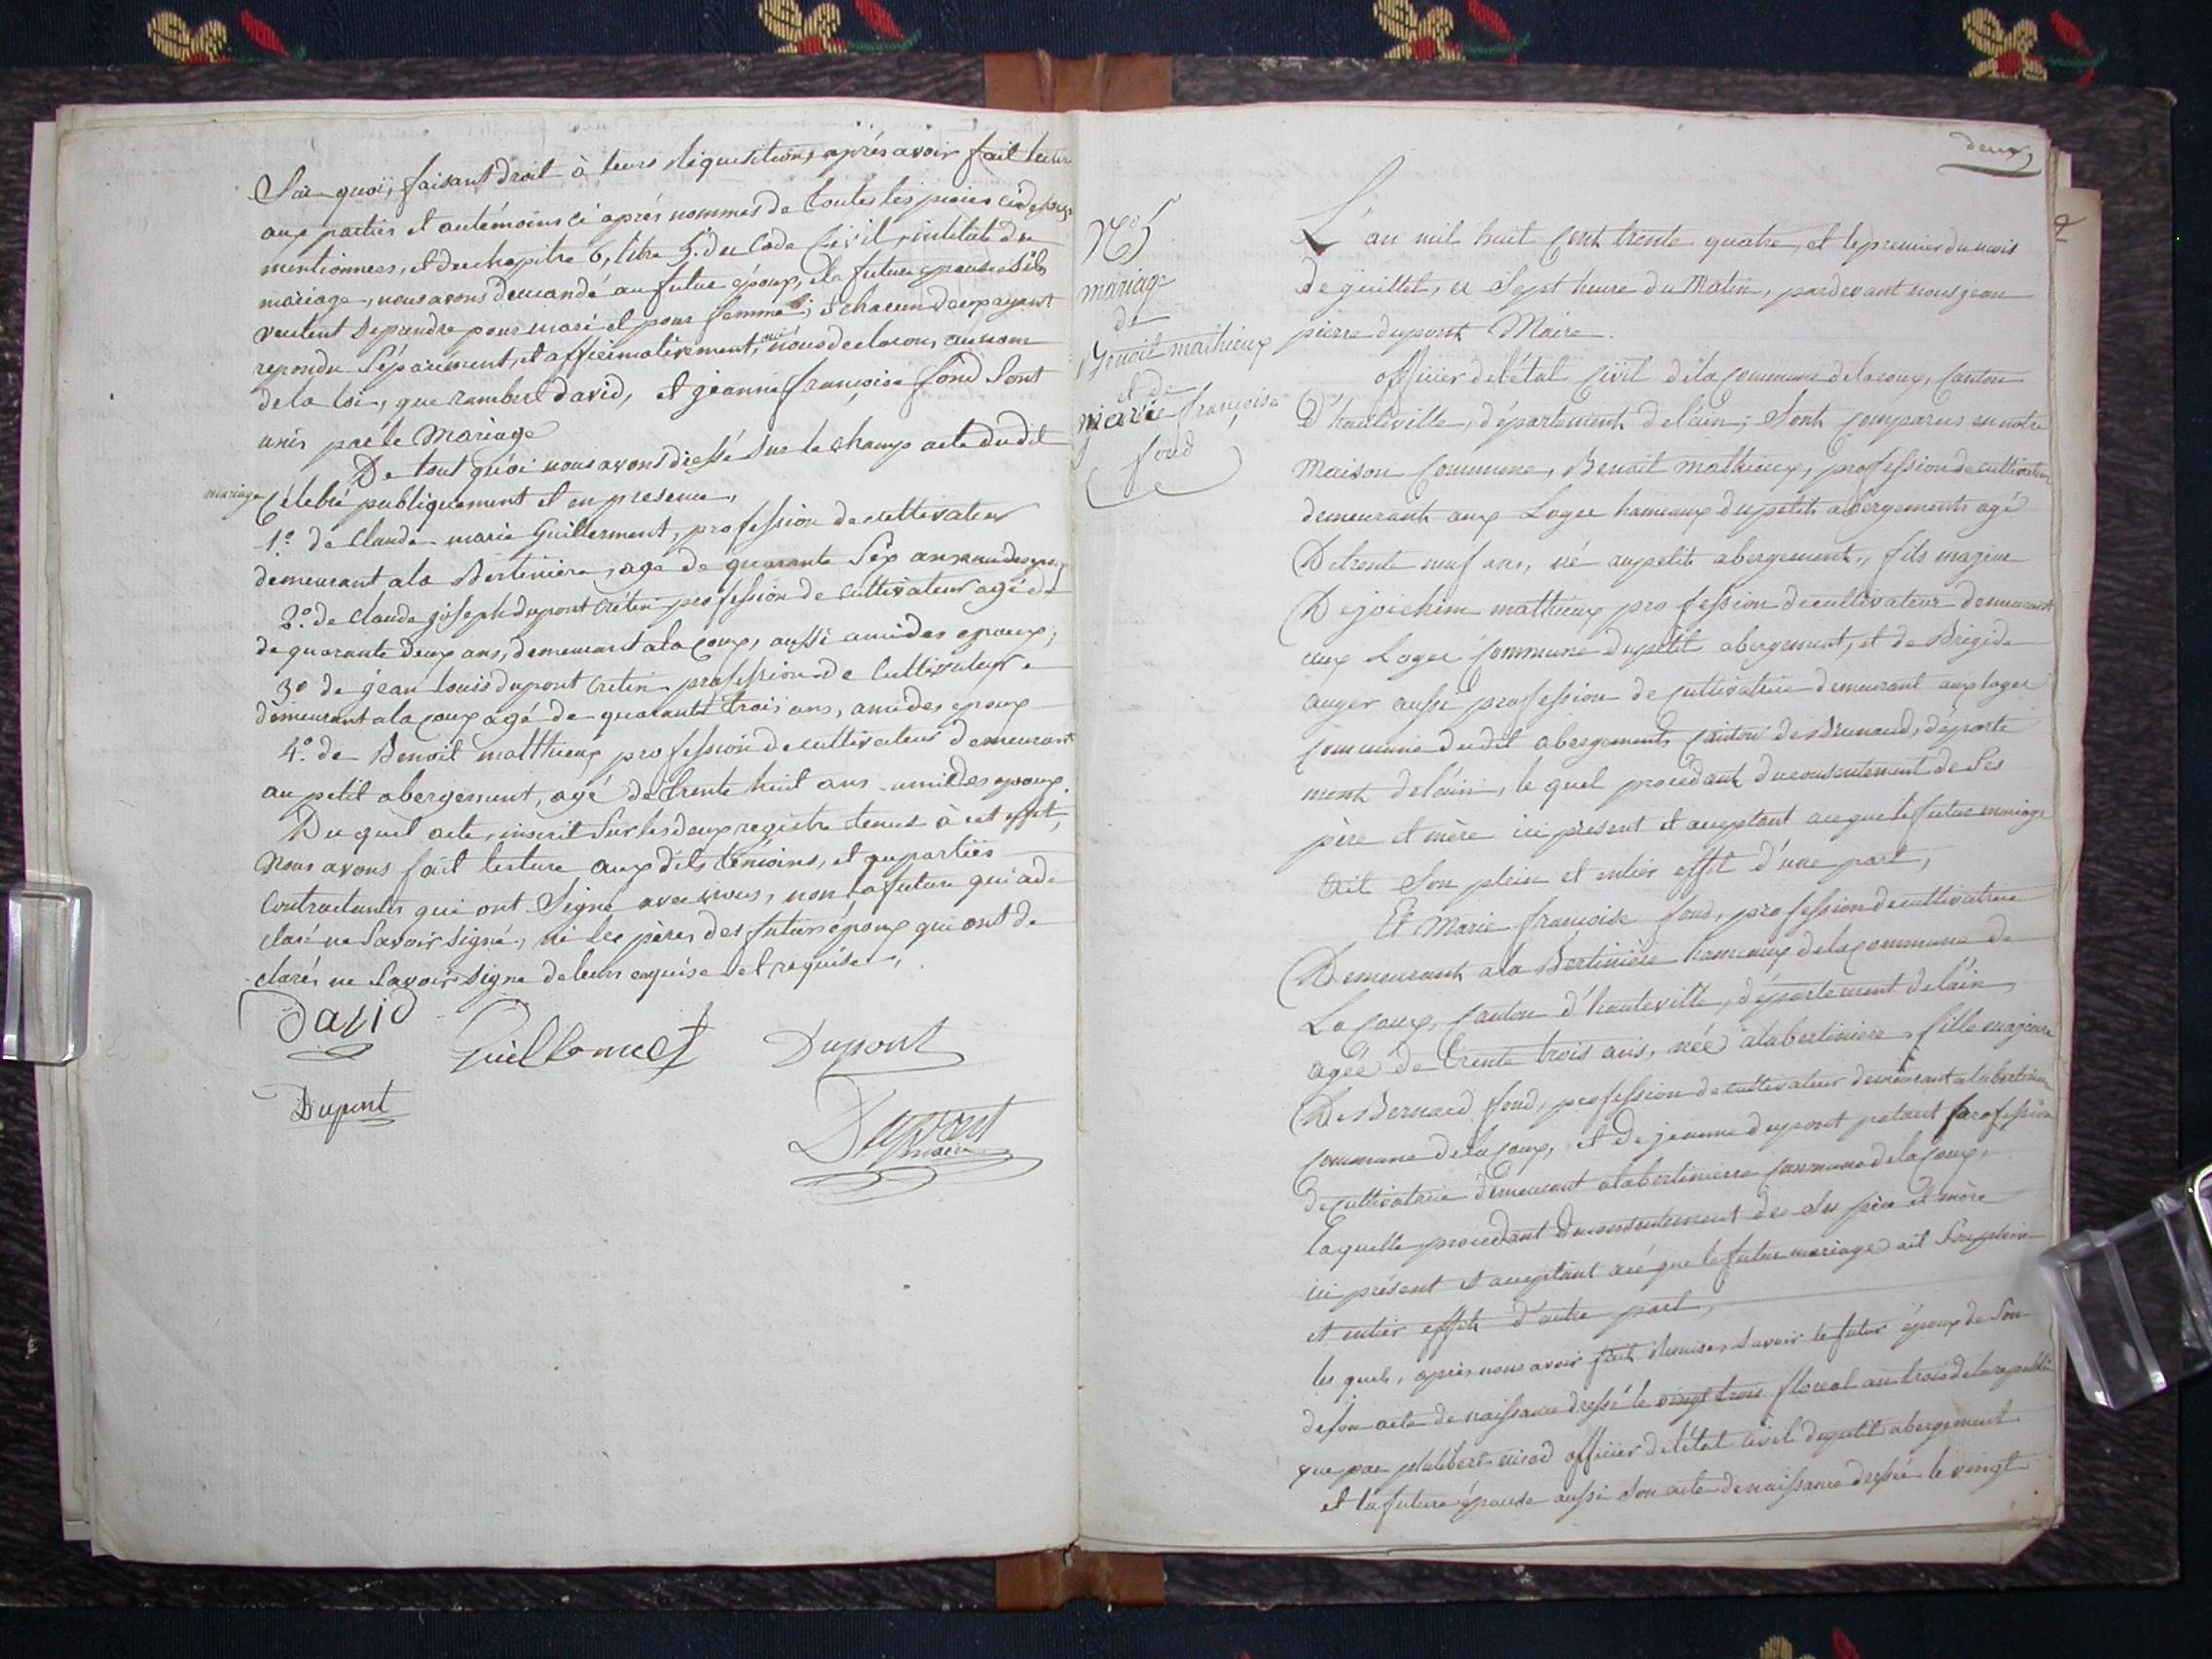 Sur quoi, faisant droit à leurs réquisitions, après avoir fait lecture
aux parties et autémoins ci après nommés de toutes les pièces cidessus
mentionnées, et du chapitre 6, titre 5. du Code Civil, intitulé du
mariage, nous avons demandé au futur époux, et la future épouse s'ils
veulent se prendre pour mari et pour femme; et chacun deux ayant
repondu séparément, et affirmativement, oui nous declarons, au nom
de la loi, que rambert david, et jeanne françoise fond sont
unis par le Mariage
De tout quoi nous avons dressé sur le champ acte dudit
mariage Célébré publiquement et en presence,
1.º de Claude marie Guillermet, profession de cultivateur
demeurant ala Bertiniere, agé de quarante Six ans, ami des époux
2.º de Claude joseph dupont Crétin profession de Cultivateur agé de
de quarante deux ans, demeurant ala coux, aussi ami des epoux,
3º de jean louis dupont Cretin profession de Cultivateur
demeurant ala coux agé de quarante trois ans, ami des epoux
4.º de Benoit matthieux profession de cultivateur demeurant
au petit abergement, agé de trente huit ans ami des époux.
Du quel acte, inscrit sur les deux registre tenus à cet effet,
Nous avons fait lecture aux dits témoins, et au parties
Contractantes qui ont Signé avec nous, non la future qui a dé
claré ne Savoir signé, ni les pères des futurs époux qui ont de
clarés ne Savoir signé de leurs enquise et requise,
David
Guillermet
Dupont
Dupont
Dupont
maire
deux
Nº 5
mariage
de
Benoit mathieux
et de
marie françoise
fond
L'an mil huit Cent trente quatre, et le premier du mois
de juillet, a Sept heure du Matin, pardevant nous jean
pierre dupont Maire.
officier de l'état Civil de la Commune de lacoux, Canton
D'hauteville, département de l'ain; Sont Comparus en notre
Maison Commune, Benoit mathieux, profession de cultivateur
demeurant aux Loges hameaux du petit abergement agé
De trente neuf ans, né au petit abergement, fils majeur
De joichim mathieux profession de cultivateur demeurant
aux Loges Commune du petit abergement, et de Brigide
auger aussi profession de Cultivatrice demeurant aux loges
Commune dudit abergement Canton de Brenaud, départe
ment de l'ain, le quel procédant du consentement de Ses
père et mère ici présent et acceptant aceque le futur mariage
ait Son plein et entier effet d'une part,
Et Marie françoise fond, profession de cultivatrice
Demeurant ala Bertinière hameaux de la Commune de
La Coux, Canton d'hauteville, département de l'ain,
agée de trente trois ans, née alabertiniere, fille majeure
De Bernard fond, profession de cultivateur demeurant alabertiniere
Commune de la Coux, et de jeanne dupont patant profession
de Cultivatrice demeurant alabertinierre Commune de la Coux,
Laquelle procédant du consentement de Ses père et mère
ici présent et acceptant acé que le futur mariage ait Son plein
et entier effet d'autre part,
les quels, après nous avoir fait remise, savoir le futur époux de Son
de son acte de naissance dressé le vingt trois floreal an trois de la republi
que par philibert nicod officier de l'état civil du petit abergement
et la future épouse aussi Son acte de naissance dressée le vingt